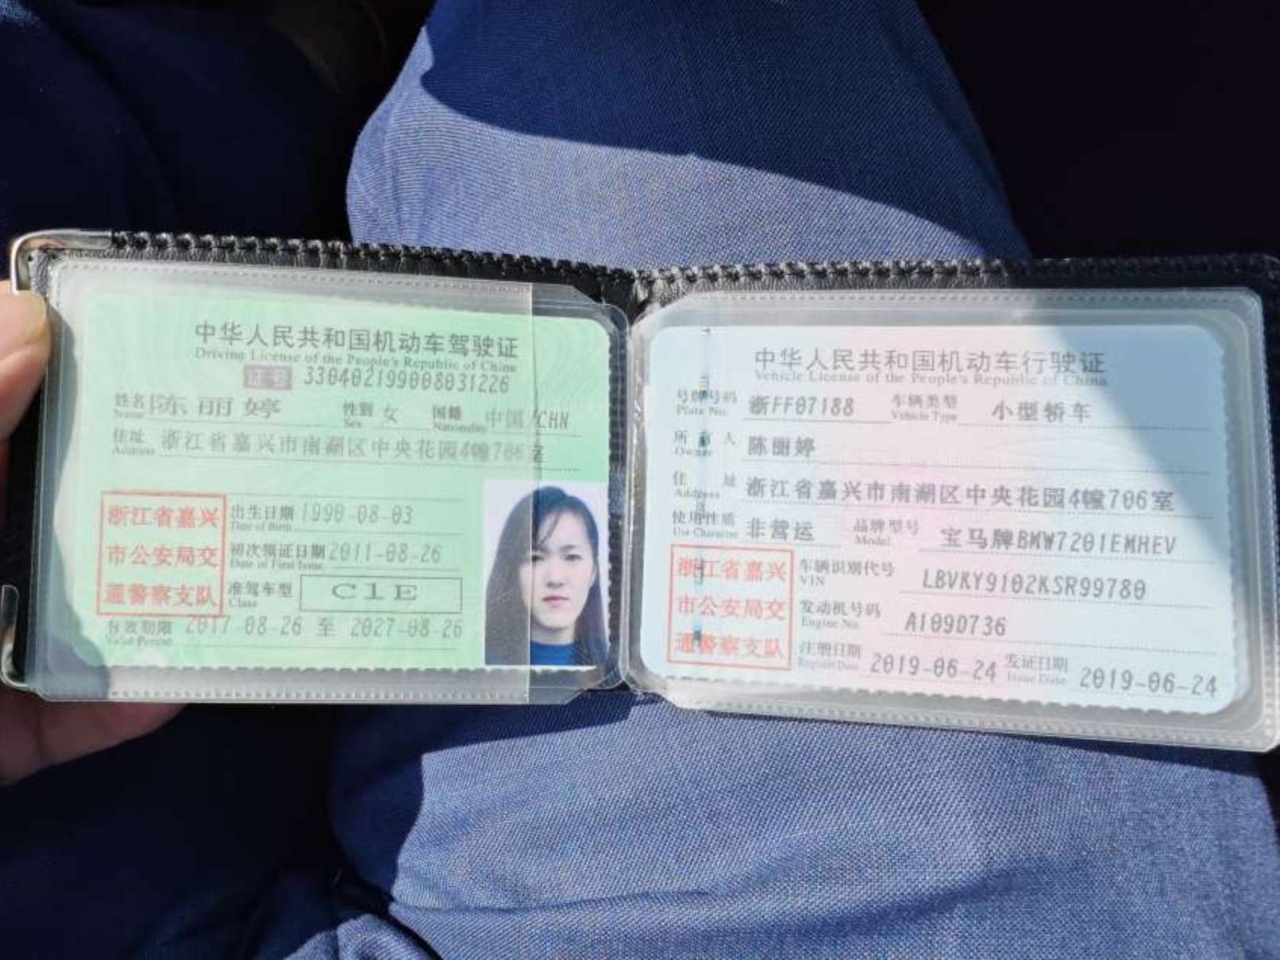 中华人民共和国机动车驾驶证
Driving License of the People's Republic of China
证号 330402199008031226
姓名 Name 陈丽婷 性别 Sex 女 国籍 Nationality 中国/CHN
住址 Address 浙江省嘉兴市南湖区中央花园4幢706室
浙江省嘉兴
市公安局交
通警察支队
出生日期 Date of Birth 1990-08-03
初次领证日期 Date of First Issue 2011-08-26
准驾车型 Class C1E
有效期限 Valid Period 2017-08-26 至 2027-08-26
中华人民共和国机动车行驶证
Vehicle License of the People's Republic of China
号牌号码 Plate No. 浙FF07188 车辆类型 Vehicle Type 小型轿车
所有人 Owner 陈丽婷
住址 Address 浙江省嘉兴市南湖区中央花园4幢706室
使用性质 Use Character 非营运 品牌型号 Model 宝马牌BMW7201EMHEV
浙江省嘉兴
市公安局交
通警察支队
车辆识别代号 VIN LBVKY9102KSR99780
发动机号码 Engine No. A109D736
注册日期 Register Date 2019-06-24 发证日期 Issue Date 2019-06-24